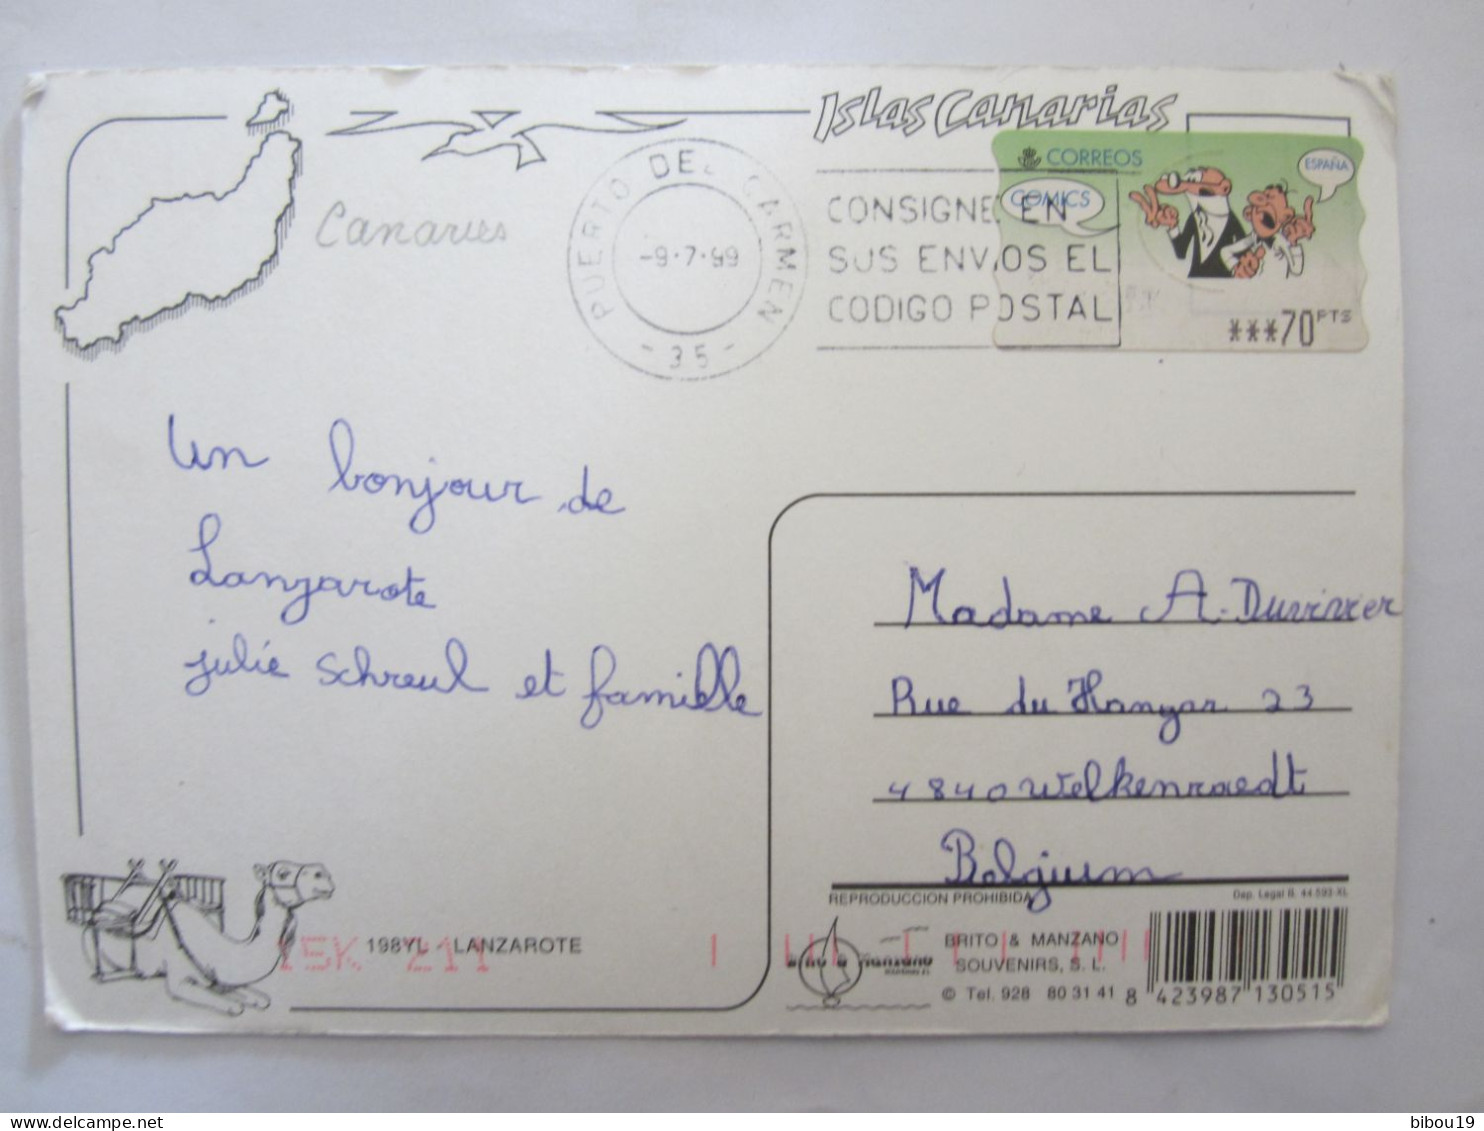 Islas Canarias
CORREOS
COMICS
ESPAÑA
***70 PTS
PUERTO DEL CARMEN
-9-7-99
- 35 -
CONSIGNE EN
SUS ENVIOS EL
CODIGO POSTAL
Canaries
Un bonjour de
Lanzarote
julie Schreul et famille
Madame A. Duvivier
Rue du Hanyar 23
4840 Welkenraedt
Belgium
REPRODUCCION PROHIBIDA
Dep. Legal B. 44.593-XL
198YL - LANZAROTE
15K 211
BRITO & MANZANO
SOUVENIRS, S. L.
© Tel. 928 80 31 41
8 423987 130515
bibou19